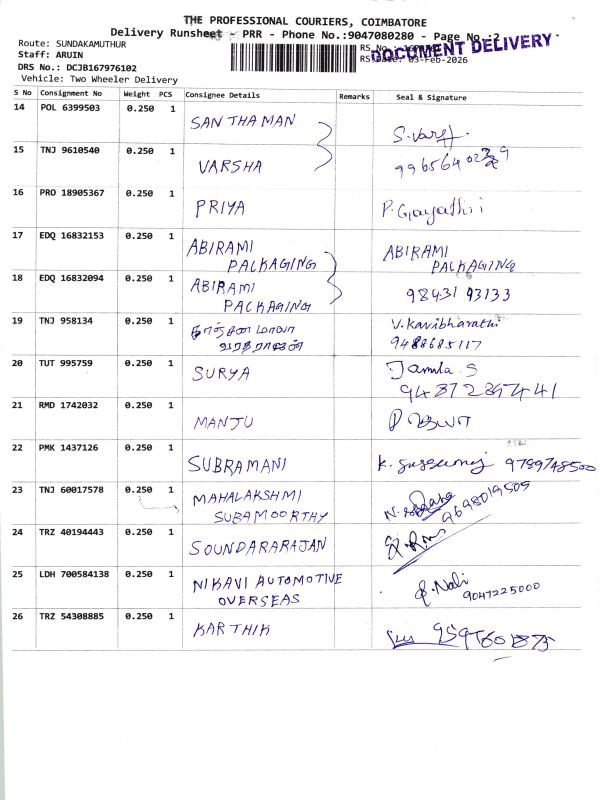 THE PROFESSIONAL COURIERS, COIMBATORE
Delivery Runsheet - PRR - Phone No.:9047080280 - Page No.:2
DOCUMENT DELIVERY
Route: SUNDAKAMUTHUR
Staff: ARUIN
DRS No.: DCJB167976102
Vehicle: Two Wheeler Delivery
RS No.:
RS Date: 03-Feb-2026
S No Consignment No Weight PCS Consignee Details Remarks Seal & Signature
14 POL 6399503 0.250 1 SANTHAMAN
15 TNJ 9610540 0.250 1 VARSHA
16 PRO 18905367 0.250 1 PRIYA P. Gayathri
17 EDQ 16832153 0.250 1 ABIRAMI PACKAGING ABIRAMI PACKAGING
18 EDQ 16832094 0.250 1 ABIRAMI PACKAGING 98431 93133
19 TNJ 958134 0.250 1 V. Kavibharathi
9488685117
20 TUT 995759 0.250 1 SURYA Jamila S
21 RMD 1742032 0.250 1 MANJU
22 PMK 1437126 0.250 1 SUBRAMANI 9789748500
23 TNJ 60017578 0.250 1 MAHALAKSHMI SUBAMOORTHY 9698019505
24 TRZ 40194443 0.250 1 SOUNDARARAJAN
25 LDH 700584138 0.250 1 NIKAVI AUTOMOTIVE OVERSEAS 9047225000
26 TRZ 54308885 0.250 1 KARTHIK